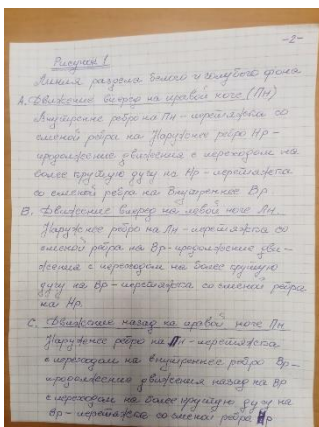 -2-
Рисунок 1
Линия раздела белого и голубого фона
А. Движение вперед на правой ноге (Пн)
Внутреннее ребро на Пн - перетяжка со
сменой ребра на Наружное ребро Нр -
продолжение движения с переходом на
более крутую дугу на Нр - перетяжка
со сменой ребра на Внутреннее Вр
В. Движение вперед на левой ноге Лн.
Наружное ребро на Лн - перетяжка со
сменой ребра на Вр - продолжение дви-
жения с переходом на более крутую
дугу на Вр - перетяжка со сменой ребра
на Нр.
С. Движение назад на правой ноге Пн
Наружное ребро на Пн - перетяжка
с переходом на внутреннее ребро Вр -
продолжение движения назад на Вр
с переходом на более крутую дугу на
Вр - перетяжка со сменой ребра Нр